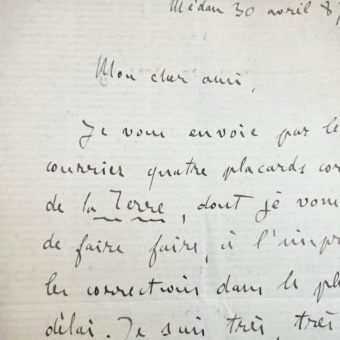 Médan 30 avril 87
Mon cher ami,
Je vous envoie par le
courrier quatre placards cor
de la Terre, dont je vous
de faire faire, à l'impr
les corrections dans le pl
délai. Je suis très, très